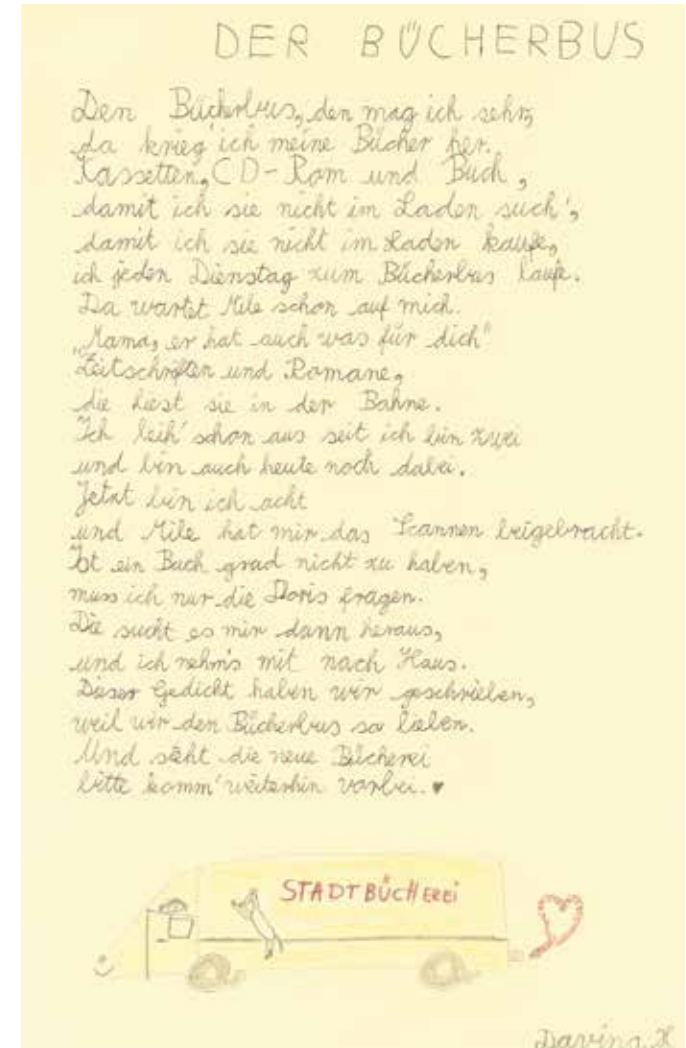 DER BÜCHERBUS
Den Bücherbus, den mag ich sehr,
da krieg' ich meine Bücher her.
Kassetten, CD-Rom und Buch,
damit ich sie nicht im Laden such',
damit ich sie nicht im Laden kaufe,
ich jeden Dienstag zum Bücherbus laufe.
Da wartet Mile schon auf mich.
„Mama, er hat auch was für dich"
Zeitschriften und Romane,
die liest sie in der Bahne.
Ich leih' schon aus seit ich bin zwei
und bin auch heute noch dabei.
Jetzt bin ich acht
und Mile hat mir das Scannen beigebracht.
Ist ein Buch grad nicht zu haben,
muss ich nur die Doris fragen.
Die sucht es mir dann heraus,
und ich nehm's mit nach Haus.
Dieses Gedicht haben wir geschrieben,
weil wir den Bücherbus so lieben.
Und steht die neue Bücherei
bitte komm' weiterhin vorbei. ♥
STADTBÜCHEREI
Davina H